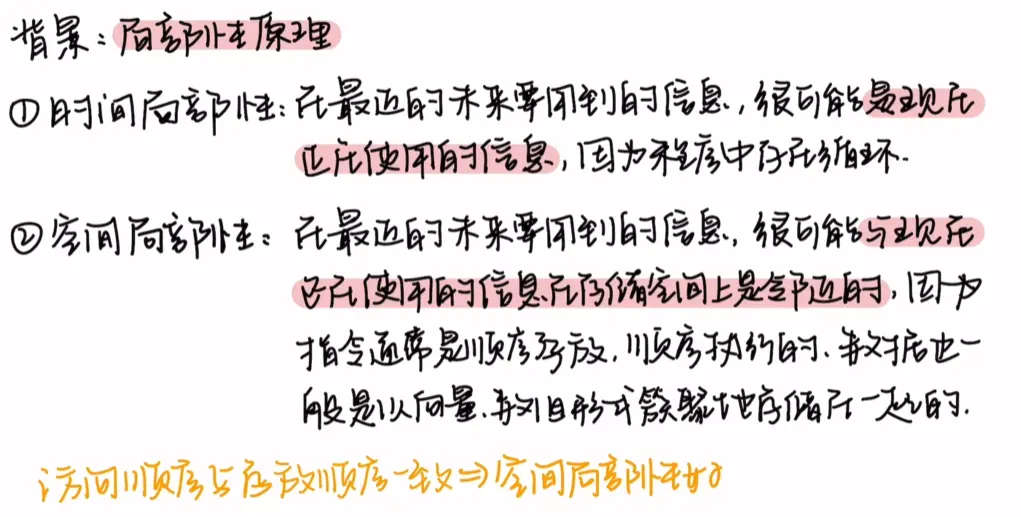 背景：局部性原理
①时间局部性：在最近的未来要用到的信息，很可能是现在
正在使用的信息，因为程序中存在循环.
②空间局部性：在最近的未来要用到的信息，很可能与现在
正在使用的信息在存储空间上是邻近的，因为
指令通常是顺序存放、顺序执行的、数据也一
般是以向量、数组形式簇聚地存储在一起的.
访问顺序与存放顺序一致⇒空间局部性好